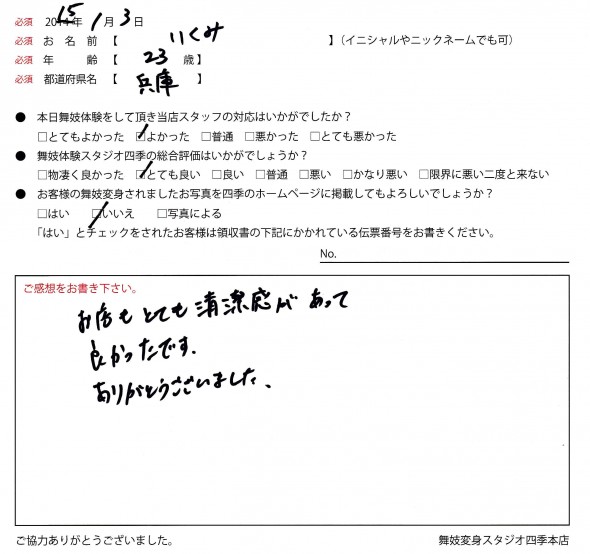 必須 2014年 15 1月3日
必須 お名前【 いくみ 】(イニシャルやニックネームでも可)
必須 年齢【 23 歳】
必須 都道府県名【 兵庫 】
● 本日舞妓体験をして頂き当店スタッフの対応はいかがでしたか？
□とてもよかった □よかった □普通 □悪かった □とても悪かった
● 舞妓体験スタジオ四季の総合評価はいかがでしょうか？
□物凄く良かった □とても良い □良い □普通 □悪い □かなり悪い □限界に悪い二度と来ない
● お客様の舞妓変身されましたお写真を四季のホームページに掲載してもよろしいでしょうか？
□はい □いいえ □写真による
「はい」とチェックをされたお客様は領収書の下記にかかれている伝票番号をお書きください。
No.
ご感想をお書き下さい。
お店もとても清潔感があって
良かったです.
ありがとうございました、
ご協力ありがとうございました。 舞妓変身スタジオ四季本店